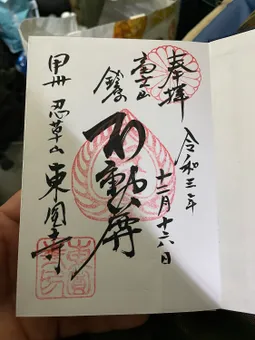 奉拝
令和三年
十二月十六日
富士山
不動尊
甲州 忍草山 東圓寺